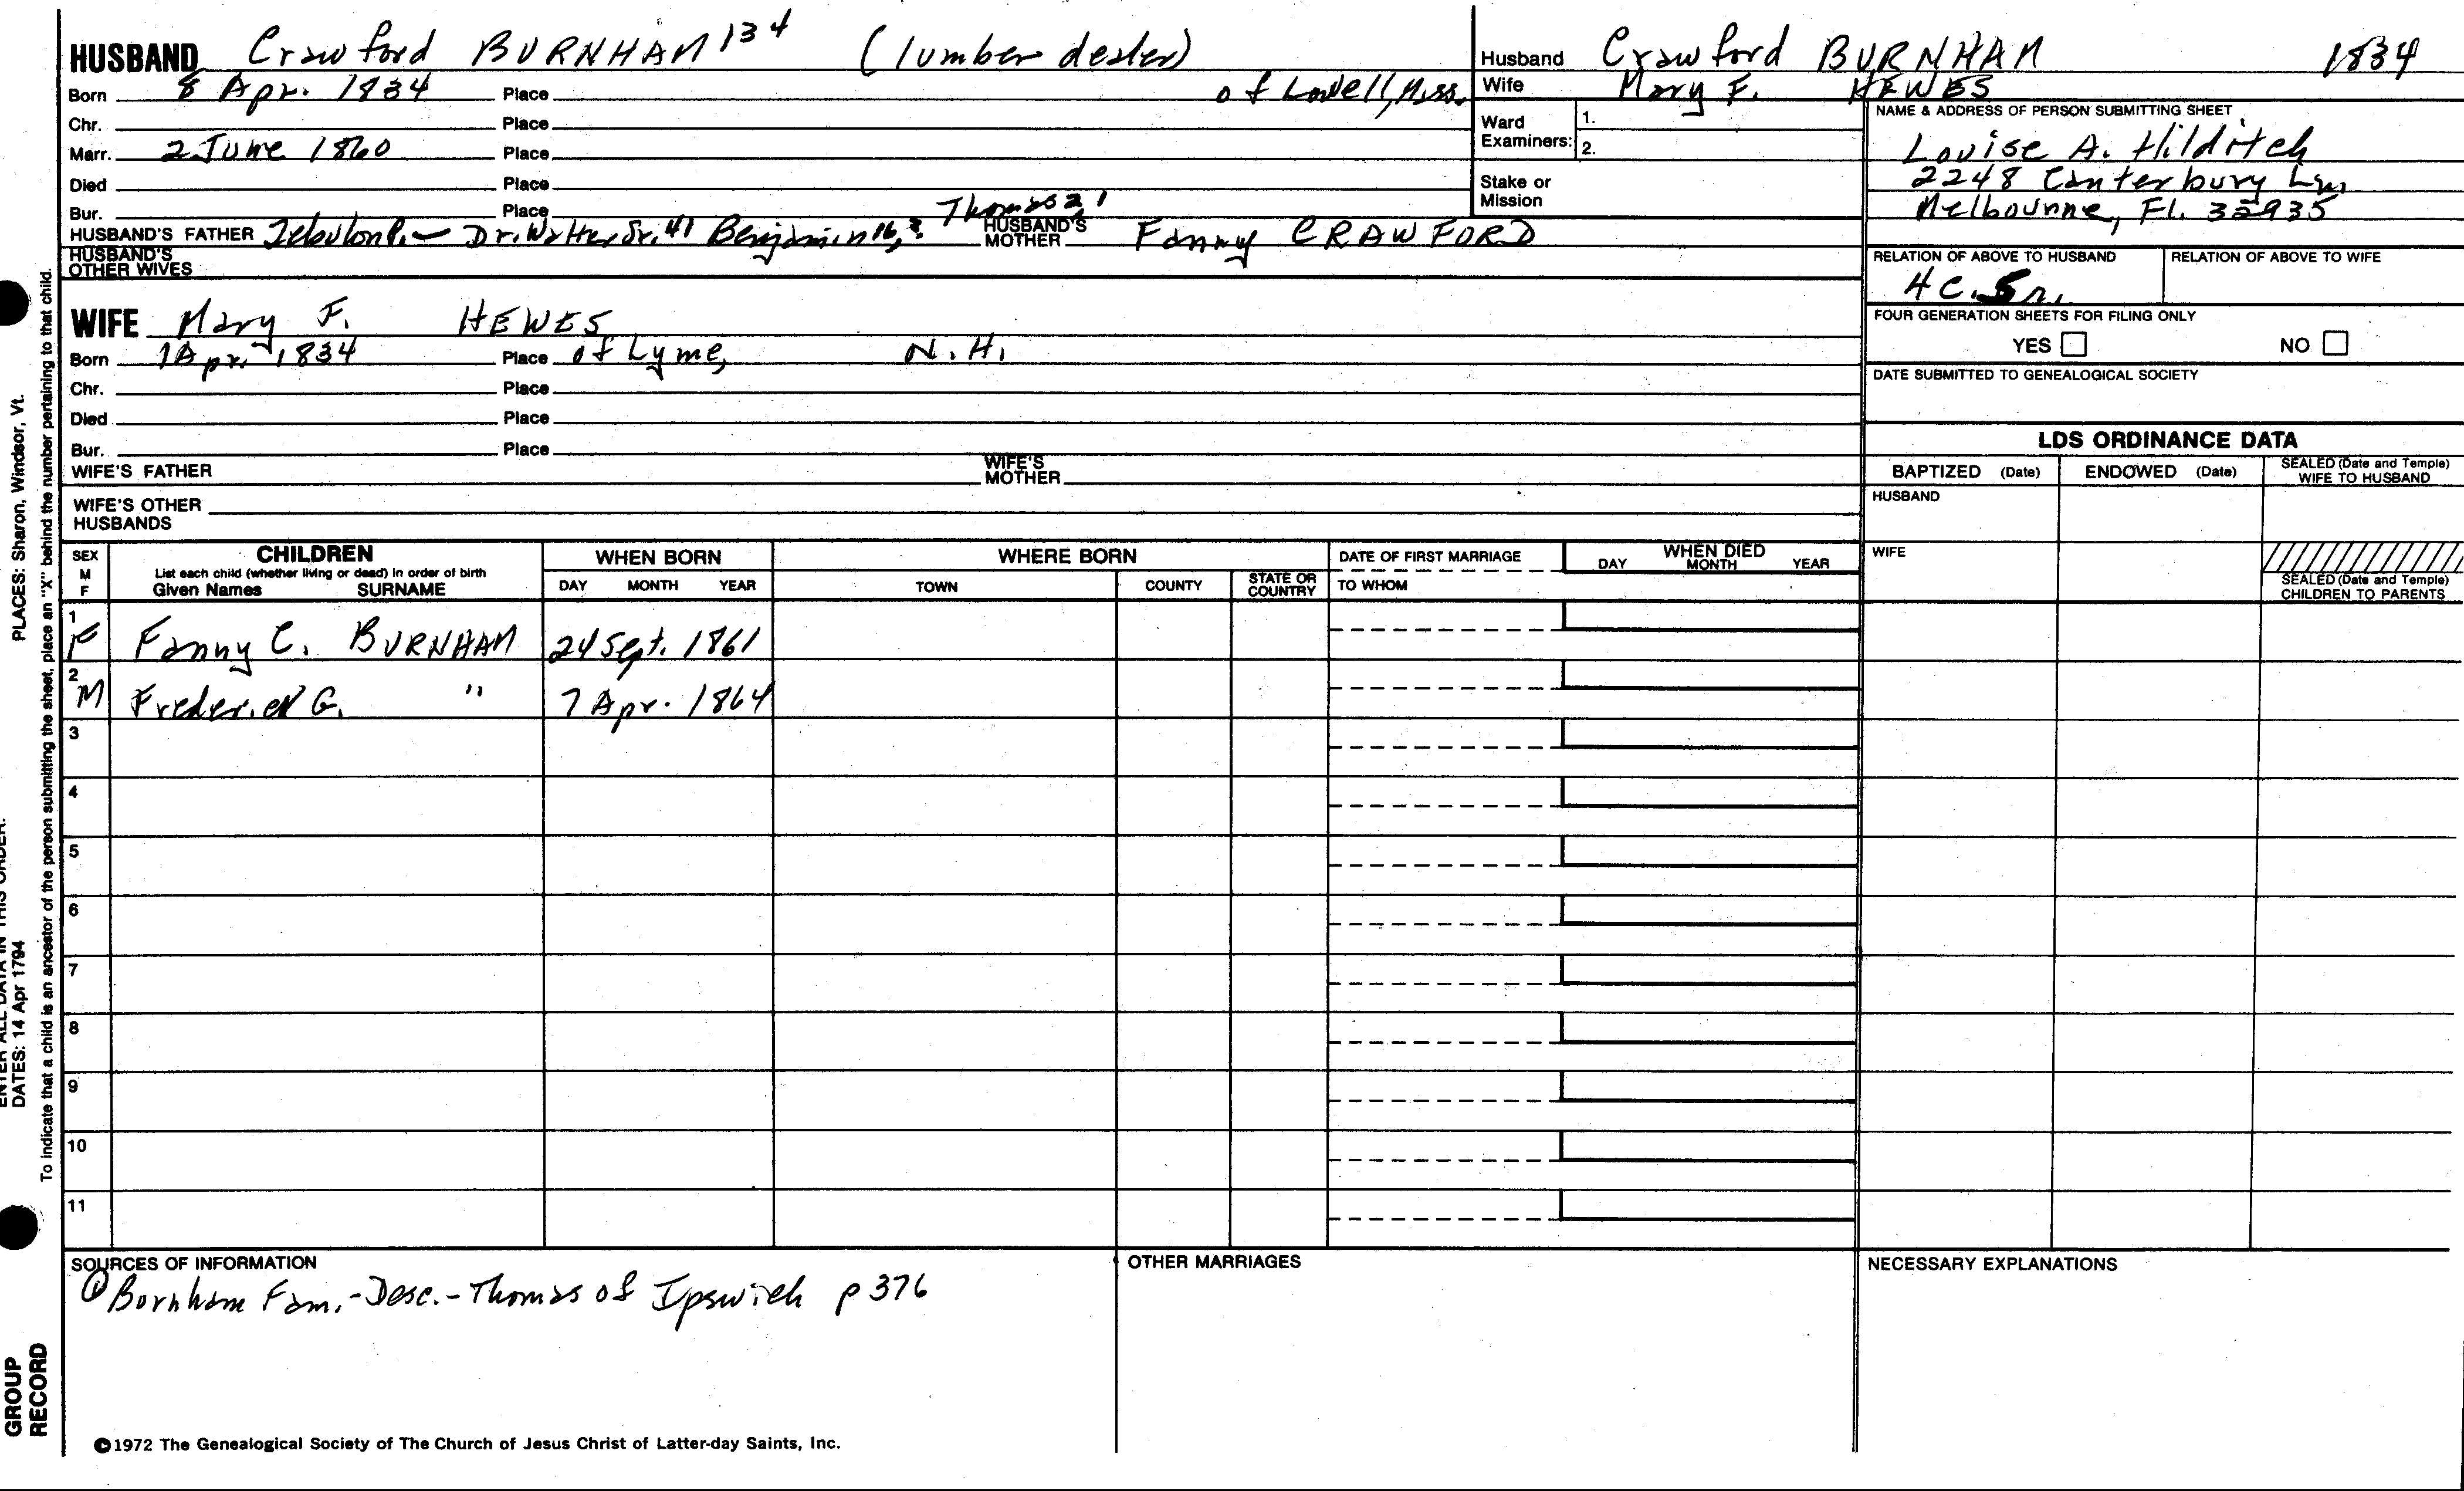 HUSBAND Crawford BURNHAM 134 (lumber dealer)
Born 8 Apr. 1834 Place of Lowell, Mass.
Chr. Place
Marr. 2 June 1860 Place
Died Place
Bur. Place
HUSBAND'S FATHER Zebulon P. — Dr. Walter Sr. 41 Benjamin 16, 3. Thomas 2, 1 HUSBAND'S MOTHER Fanny CRAWFORD
HUSBAND'S OTHER WIVES
WIFE Mary F. HEWES
Born 1 Apr. 1834 Place of Lyme, N.H.
Chr. Place
Died Place
Bur. Place
WIFE'S FATHER WIFE'S MOTHER
WIFE'S OTHER HUSBANDS
Husband Crawford BURNHAM 1834
Wife Mary F. HEWES
Ward Examiners: 1.
2.
Stake or Mission
NAME & ADDRESS OF PERSON SUBMITTING SHEET
Louise A. Hilditch
2248 Canterbury Ln.
Melbourne, Fl. 32935
RELATION OF ABOVE TO HUSBAND RELATION OF ABOVE TO WIFE
4 C. 5 r.
FOUR GENERATION SHEETS FOR FILING ONLY
YES NO
DATE SUBMITTED TO GENEALOGICAL SOCIETY
LDS ORDINANCE DATA
BAPTIZED (Date) ENDOWED (Date) SEALED (Date and Temple) WIFE TO HUSBAND
HUSBAND
WIFE
SEALED (Date and Temple) CHILDREN TO PARENTS
SEX M F
CHILDREN
List each child (whether living or dead) in order of birth
Given Names SURNAME
WHEN BORN
DAY MONTH YEAR
WHERE BORN
TOWN COUNTY STATE OR COUNTRY
DATE OF FIRST MARRIAGE
TO WHOM
WHEN DIED
DAY MONTH YEAR
1 F Fanny C. BURNHAM 24 Sept. 1861
2 M Frederick G. " 7 Apr. 1864
3
4
5
6
7
8
9
10
11
SOURCES OF INFORMATION
① Burnham Fam.-Desc.-Thomas of Ipswich p 376
OTHER MARRIAGES
NECESSARY EXPLANATIONS
©1972 The Genealogical Society of The Church of Jesus Christ of Latter-day Saints, Inc.
GROUP RECORD
ENTER ALL DATA IN THIS ORDER:
DATES: 14 Apr 1794 PLACES: Sharon, Windsor, Vt.
To indicate that a child is an ancestor of the person submitting the sheet, place an "X" behind the number pertaining to that child.